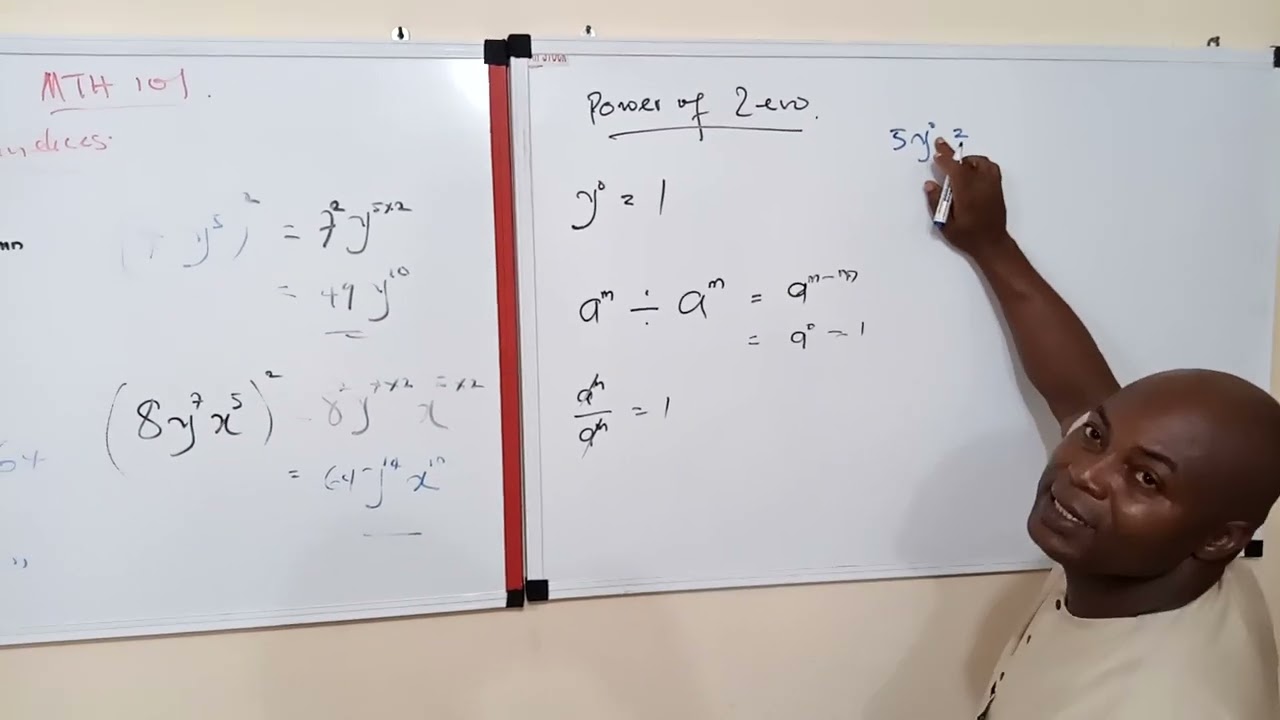 MTH 101.
ndices.
( y⁵)² = 7² y⁵ˣ²
= 49 y¹⁰
(8y⁷x⁵)² 8² y⁷ˣ² x⁼ˣ²
64
= 64 y¹⁴ x¹⁰
Power of Zero.
y⁰ = 1
aᵐ ÷ aᵐ = aᵐ⁻ᵐ
= a⁰ = 1
aᵐ/aᵐ = 1
5y⁰ =